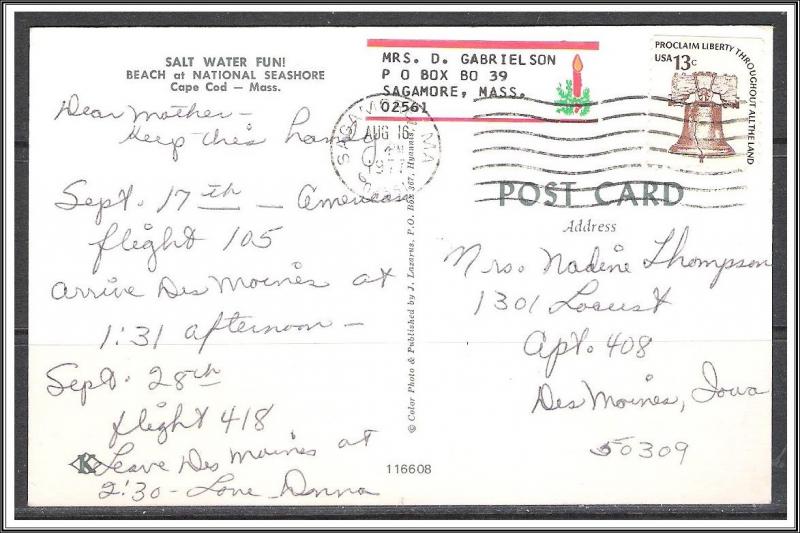 SALT WATER FUN!
BEACH at NATIONAL SEASHORE
Cape Cod — Mass.
Dear Mother –
Keep this handy
Sept. 17th — American
flight 105
arrive Des Moines at
1:31 afternoon –
Sept. 28th
flight 418
Leave Des Moines at
2:30 - Love Donna
K
MRS. D. GABRIELSON
P O BOX BO 39
SAGAMORE, MASS.
02561
SAGAMORE MA
AUG 16
PM
1977
PROCLAIM LIBERTY THROUGHOUT ALL THE LAND
USA 13c
© Color Photo & Published by J. Lazarus, P.O. Box 367, Hyannis,
POST CARD
Address
Mrs. Nadine Thompson
1301 Locust
Apt. 408
Des Moines, Iowa
50309
116608